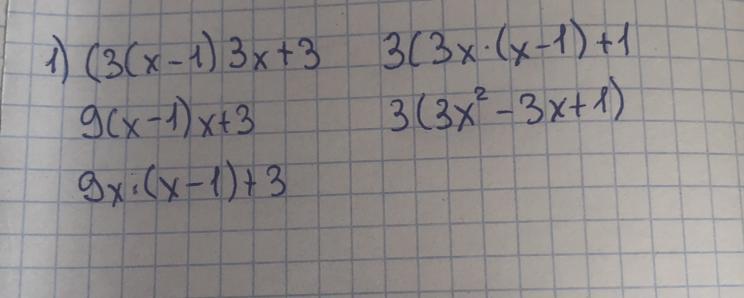 1) (3(x-1)3x+3
9(x-1)x+3
9x·(x-1)+3
3(3x·(x-1)+1
3(3x²-3x+1)